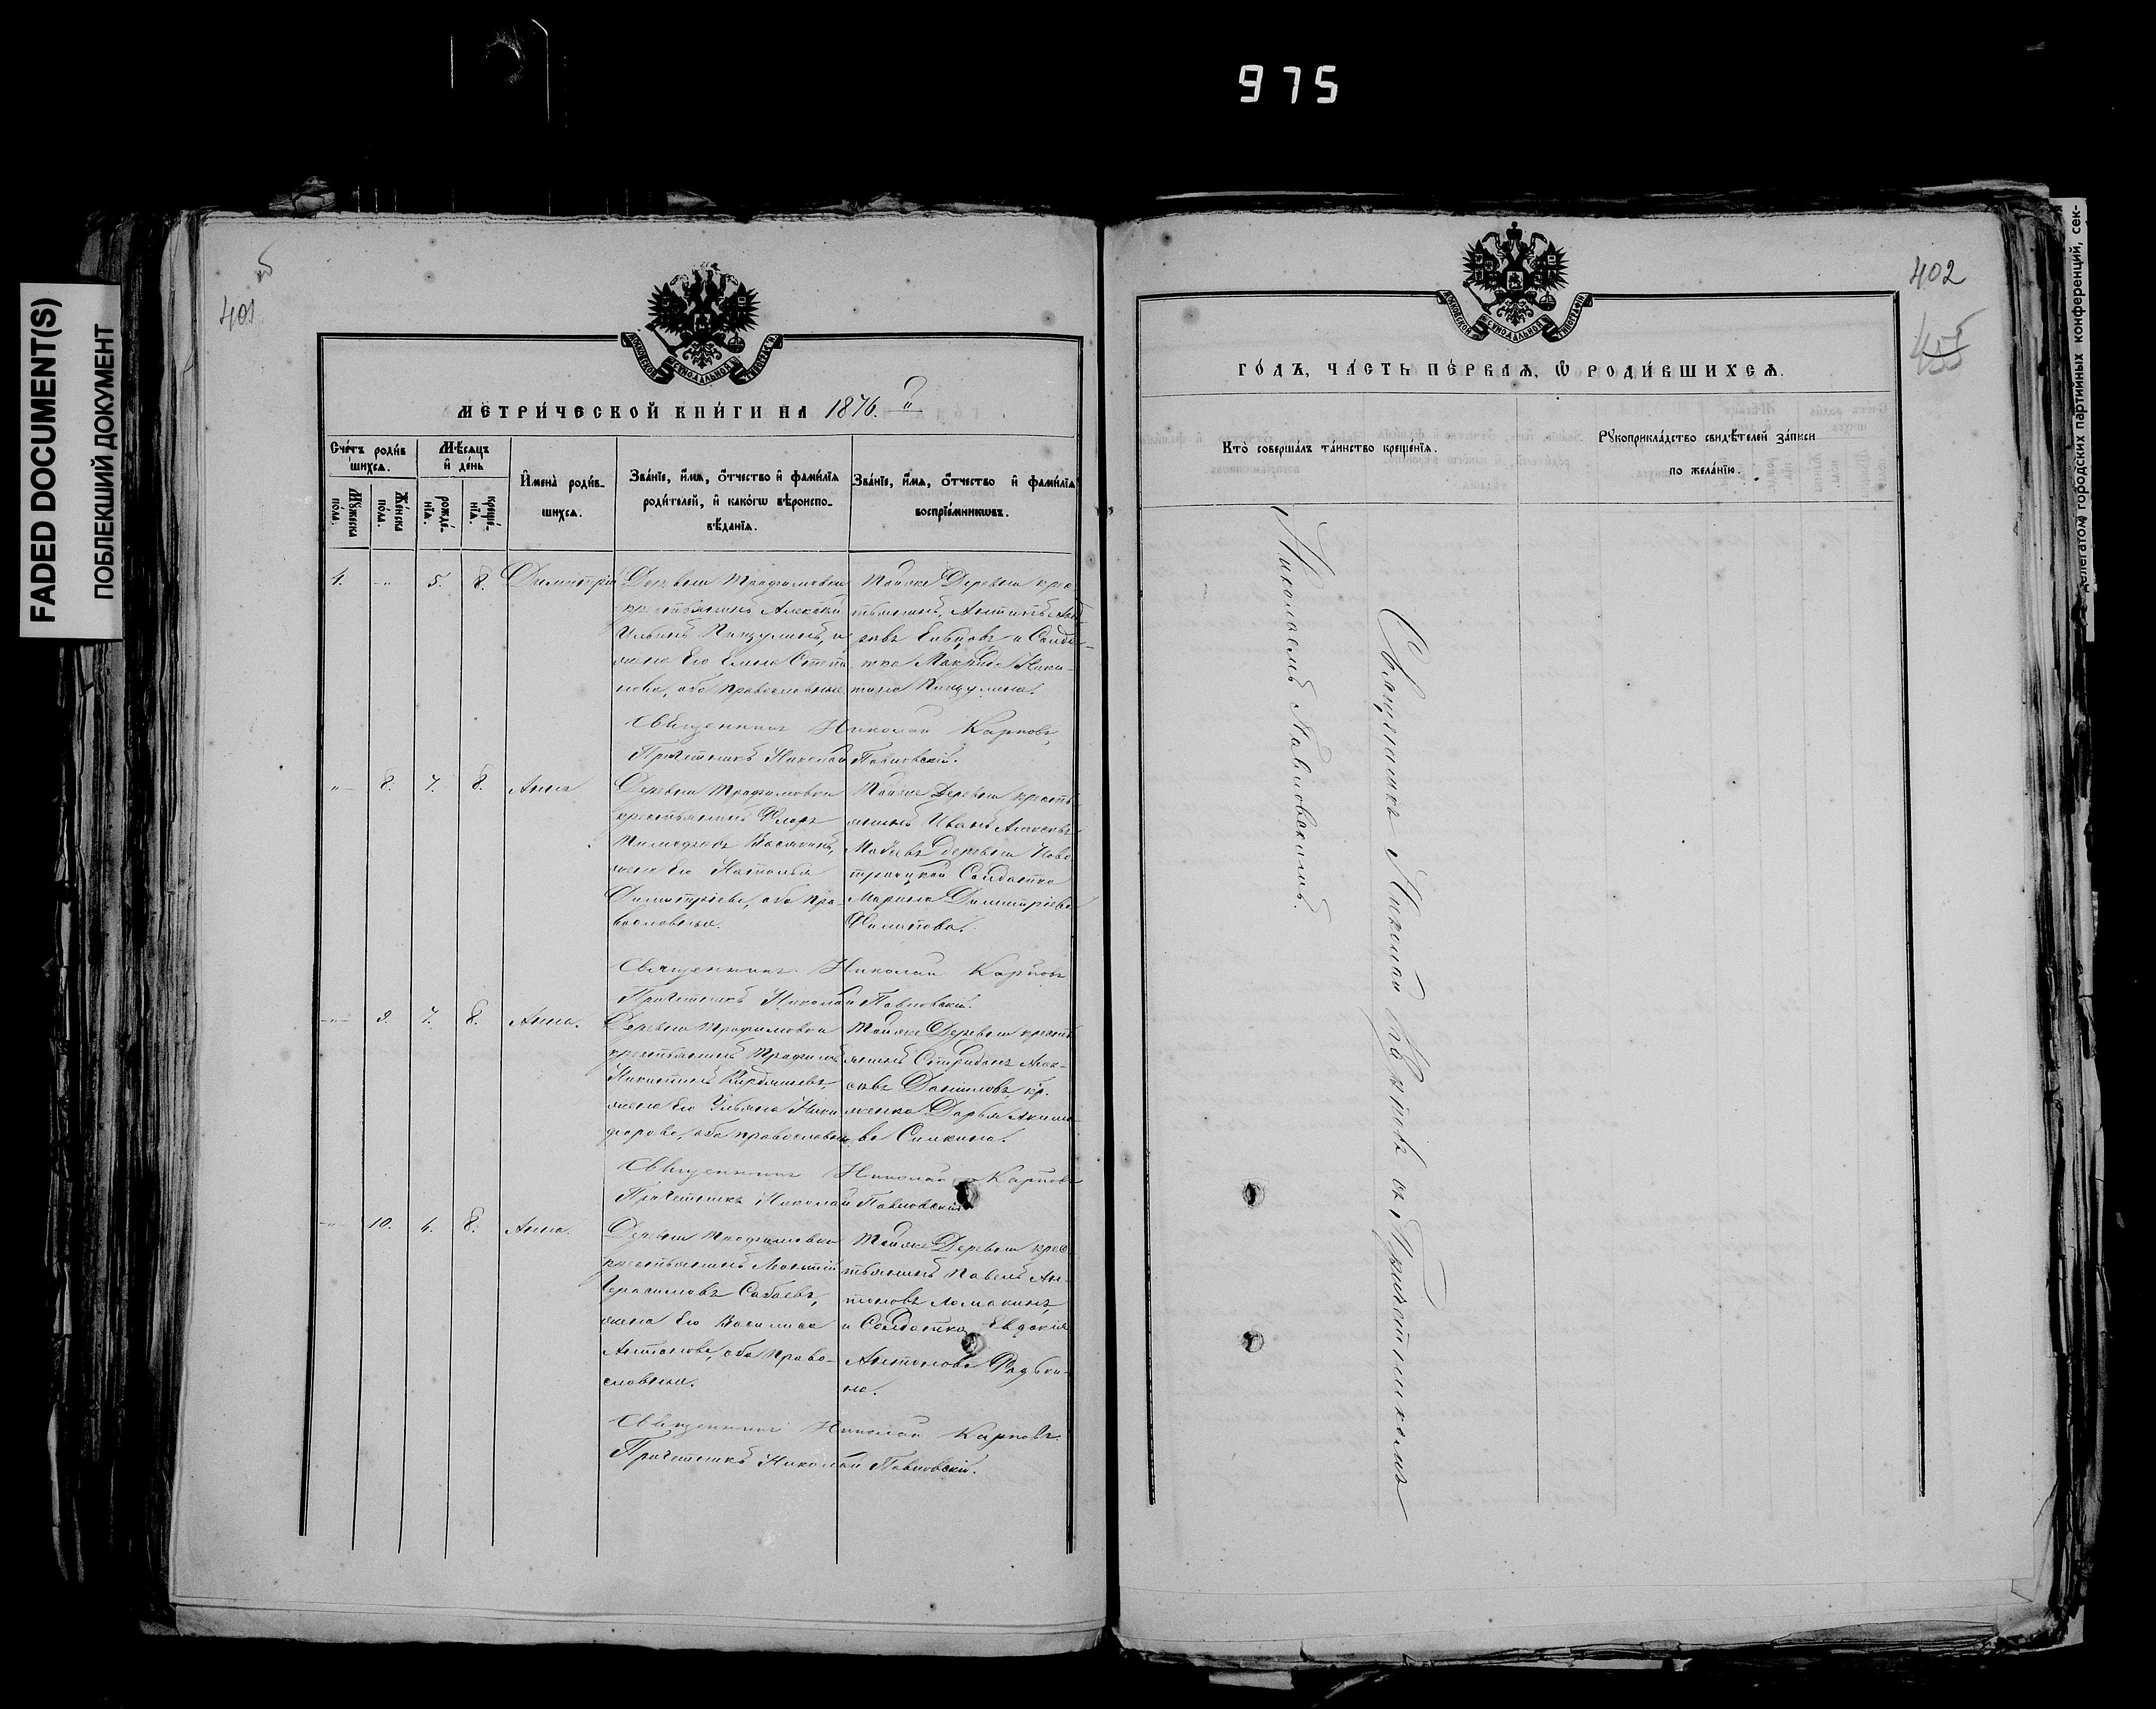 975
FADED DOCUMENT(S)
ПОБЛЕКШИЙ ДОКУМЕНТ
401
МЕТРИ́ЧЕСКОЙ КНИ́ГИ НА 1876.
Сче́тъ роди́в шихсѧ.
Мѣ́сѧцъ и҆ де́нь
Мꙋ́жеска по́ла.
Же́нска пола.
рожде́нїѧ.
креще́нїѧ.
И҆мена̀ роди́вшихсѧ.
Зва́нїе, и҆́мѧ, ѻ҆́тчество и҆ фами́лїѧ
роди́телей, и҆ како́гѡ вѣроиспо-
вѣ́данїѧ.
Зва́нїе, и҆́мѧ, ѻ҆́тчество и҆ фами́лїѧ
воспрїе́мникѡвъ.
4. 5. 8. Димитрій
Деревни Трофимовки
крестьянинъ Алексѣй
Ильинъ
жена его Елена Степа
нова, оба православные
Тойже Деревни крес
тьянинъ, Антипъ
и Солда-
тка Макрида Ники-
тина
Священникъ Николай Карповъ
Причетникъ Николай Павловскій.
8. 7. 8. Анна
Деревни Трофимовки
крестьянинъ Флоръ
жена его Наталья
Димитріева, оба пра-
вославные.
Тойже Деревни кресть
янинъ Иванъ Алексѣевъ
деревни Ново
троицкой Солдатка
Марина Димитріева
Филипова.
Священникъ Николай Карповъ
Причетникъ Николай Павловскій.
9. 7. 8. Анна.
Деревни Трофимовки
крестьянинъ Трофимъ
Никитинъ
жена его Ульяна Ники
форова, оба православные
Тойже Деревни кресть
янинъ Спиридонъ Алек-
сѣевъ Даниловъ, кр.
женка Дарья Акимо
ва Симкина.
Священникъ Николай Карповъ
Причетникъ Николай Павловскій
10. 4. 8. Анна.
Деревни Трофимовки
крестьянинъ Леонтій
Герасимовъ Сабаевъ,
жена его Василиса
Антонова, оба право-
славные.
Тойже Деревни крес-
тьянинъ Павелъ Ан-
тоновъ Ломакинъ,
и Солдатка Евдокія
Антонова Федьки-
на.
Священникъ Николай Карповъ.
Причетникъ Николай Павловскій.
402
ГО́ДЪ, ЧА́СТЬ ПЕ́РВАѦ, Ѡ҆ РОДИ́ВШИХСѦ.
Кто̀ соверша́лъ та́инство креще́нїѧ.
Рꙋкоприкла́дство свидѣ́телей за́писи
по жела́нїю.
Священникъ Николай Карповъ съ Причетникомъ
Николаемъ Павловскимъ.
делегатом) городских партийных конференций, сек-